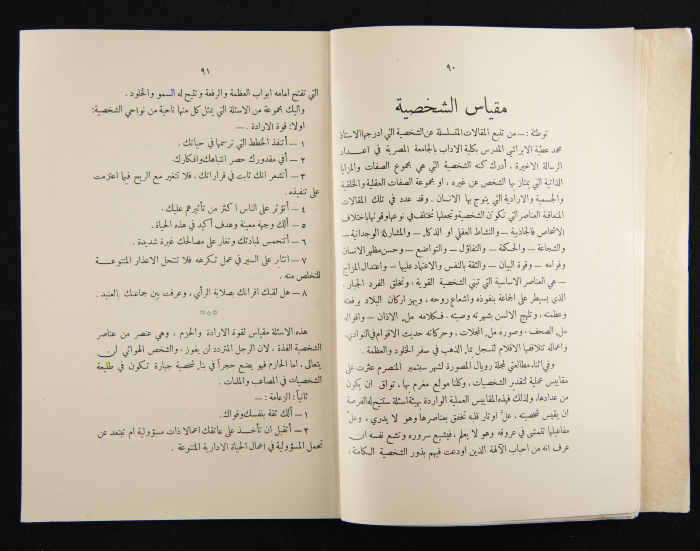 ٩٠
مقياس الشخصية
توطئة : — من تتبع المقالات المتسلسلة عن الشخصية التي ادرجها الاستاذ
محمد عطية الابراشي المدرس بكلية الآداب بالجامعة المصرية في اعداد
الرسالة الاخيرة ، أدرك كنه الشخصية التي هي مجموع الصفات والمزايا
الذاتية التي يمتاز بها الشخص عن غيره ، او مجموعة الصفات العقلية والخلقية
والجسمية والارادية التي يتوج بها الانسان . وقد عدد في تلك المقالات
المتعاقبة العناصر التي تكون الشخصية وتجعلها تختلف في نوعها وقوتها باختلاف
الاشخاص فالجاذبية — والنشاط العقلي او الذكاء — والمشاركة الوجدانية —
والشجاعة — والحكمة — والتفاؤل — والتواضع — وحسن مظهر الانسان
وقوامه — وقوة البيان — والثقة بالنفس والاعتماد عليها — واعتدال المزاج
— هي العناصر الاساسية التي تبني الشخصية القوية ، وتخلق الفرد الجبار
الذي يسيطر على الجماعة بنفوذه واشعاع روحه ، ويهز اركان البلاد برفعته
وعظمته ، وتلهج الالسن بشهرته وصيته . فكلامه ملء الاذان — واقواله
ملء الصحف ، وصوره ملء المجلات ، وحركاته حديث الاقوام في النوادي ،
واعماله تتلاقفها الاقلام لتسجل بماء الذهب في سفر الخلود والعظمة .
وفي اثناء مطالعتي لمجلة رويال المصورة لشهر سبتمبر المنصرم عثرت على
مقاييس عملية لتقدير الشخصيات ، وكلنا مولع مغرم بها ، تواق ان يكون
من عدادها ، ولذلك فهذه المقاييس العملية الواردة بهيئة اسئلة ستتيح له الفرصة
ان يقيس شخصيته ، علَّ اوتار قلبه تخفق بعناصرها وهو لا يدري ، وعلَّ
مفاعيلها تتمشى في عروقه وهو لا يعلم ، فيشيع سروره وتشع نفسه ان
عرف انه من احباب الآلهة الذين اودعت فيهم بذور الشخصية الكامنة ،
٩١
التي تفتح امامه ابواب العظمة والرفعة وتتيح له السمو والخلود .
واليك مجموعة من الاسئلة التي يمثل كل منها ناحية من نواحي الشخصية :
اولا : قوة الارادة . —
١ — أتنفذ الخطط التي ترسمها في حياتك .
٢ — أفي مقدورك حصر انتباهك وافكارك .
٣ — أتشعر انك ثابت في قراراتك ، فلا تتغير مع الريح فيما اعتزمت
على تنفيذه .
٤ — أتؤثر على الناس اكثر من تأثيرهم عليك .
٥ — ألك وجهة معينة وهدف أكيد في هذه الحياة .
٦ — أتتحمس لمبادئك وتغار على مصالحك غيرة شديدة .
٧ — اتثابر على السير في عمل تكرهه فلا تنتحل الاعذار المتنوعة
للتخلص منه .
٨ — هل لقبك اقرانك بصلابة الرأي ، وعرفت بين جماعتك بالعنيد .
٭٭٭
هذه الاسئلة مقياس لقوة الارادة والحزم ، وهي عنصر من عناصر
الشخصية الفذة ، لان الرجل المتردد لن يفوز ، والشخص الهوائي لن
يتعالى . اما الحازم فهو يضع حجراً في بناء شخصية جبارة تكون في طليعة
الشخصيات في المصاعب والملمات .
ثانياً : الزعامة : —
١ — ألك ثقة بنفسك وقواك .
٢ — أتقبل ان تأخذ على عاتقك اعمالا ذات مسؤولية ام تبتعد عن
تحمل المسؤولية في اعمال الحياة الادارية المتنوعة .